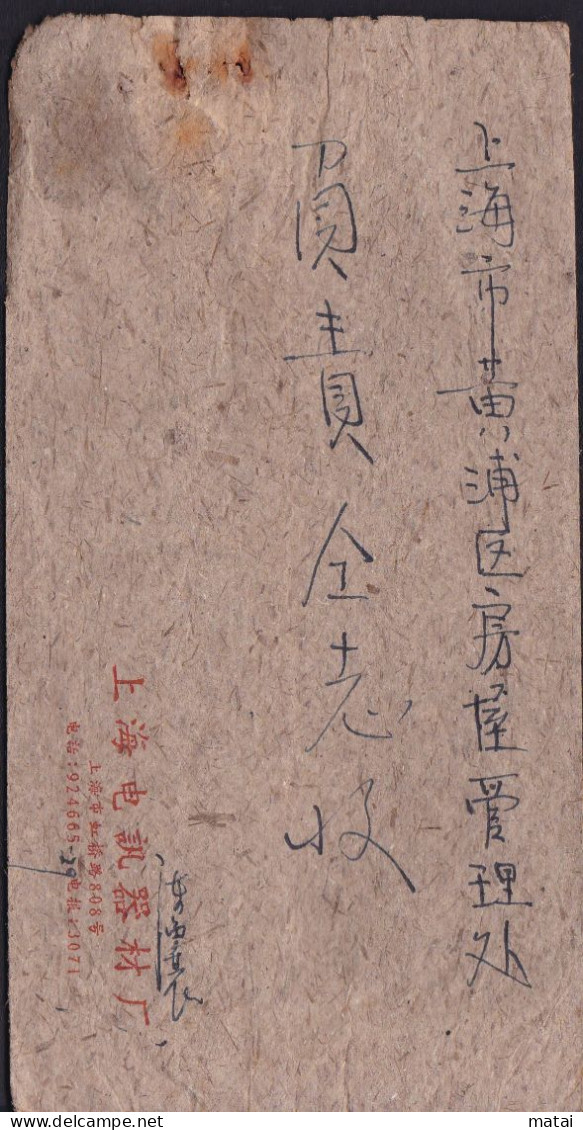 上海市黄浦区房屋管理处
负责仝志收
上海电訊器材厂
上海市虹桥路808号
电话:924665-29 电挂:3071
matai